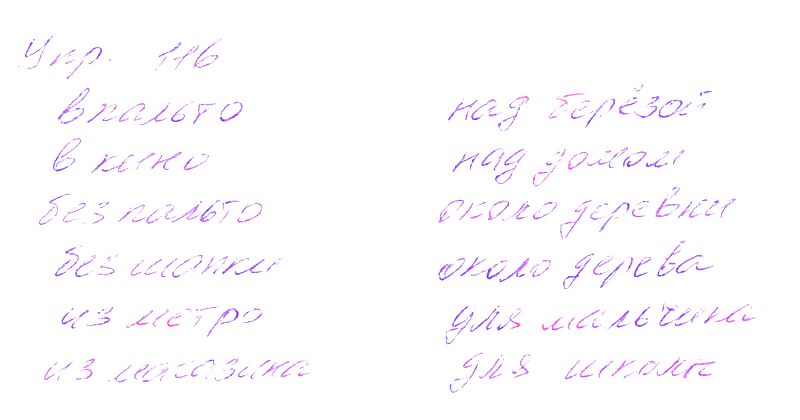 Упр. 116
в пальто
в кино
без пальто
без шапки
из метро
из магазина
над берёзой
над домом
около деревни
около дерева
для мальчика
для школы